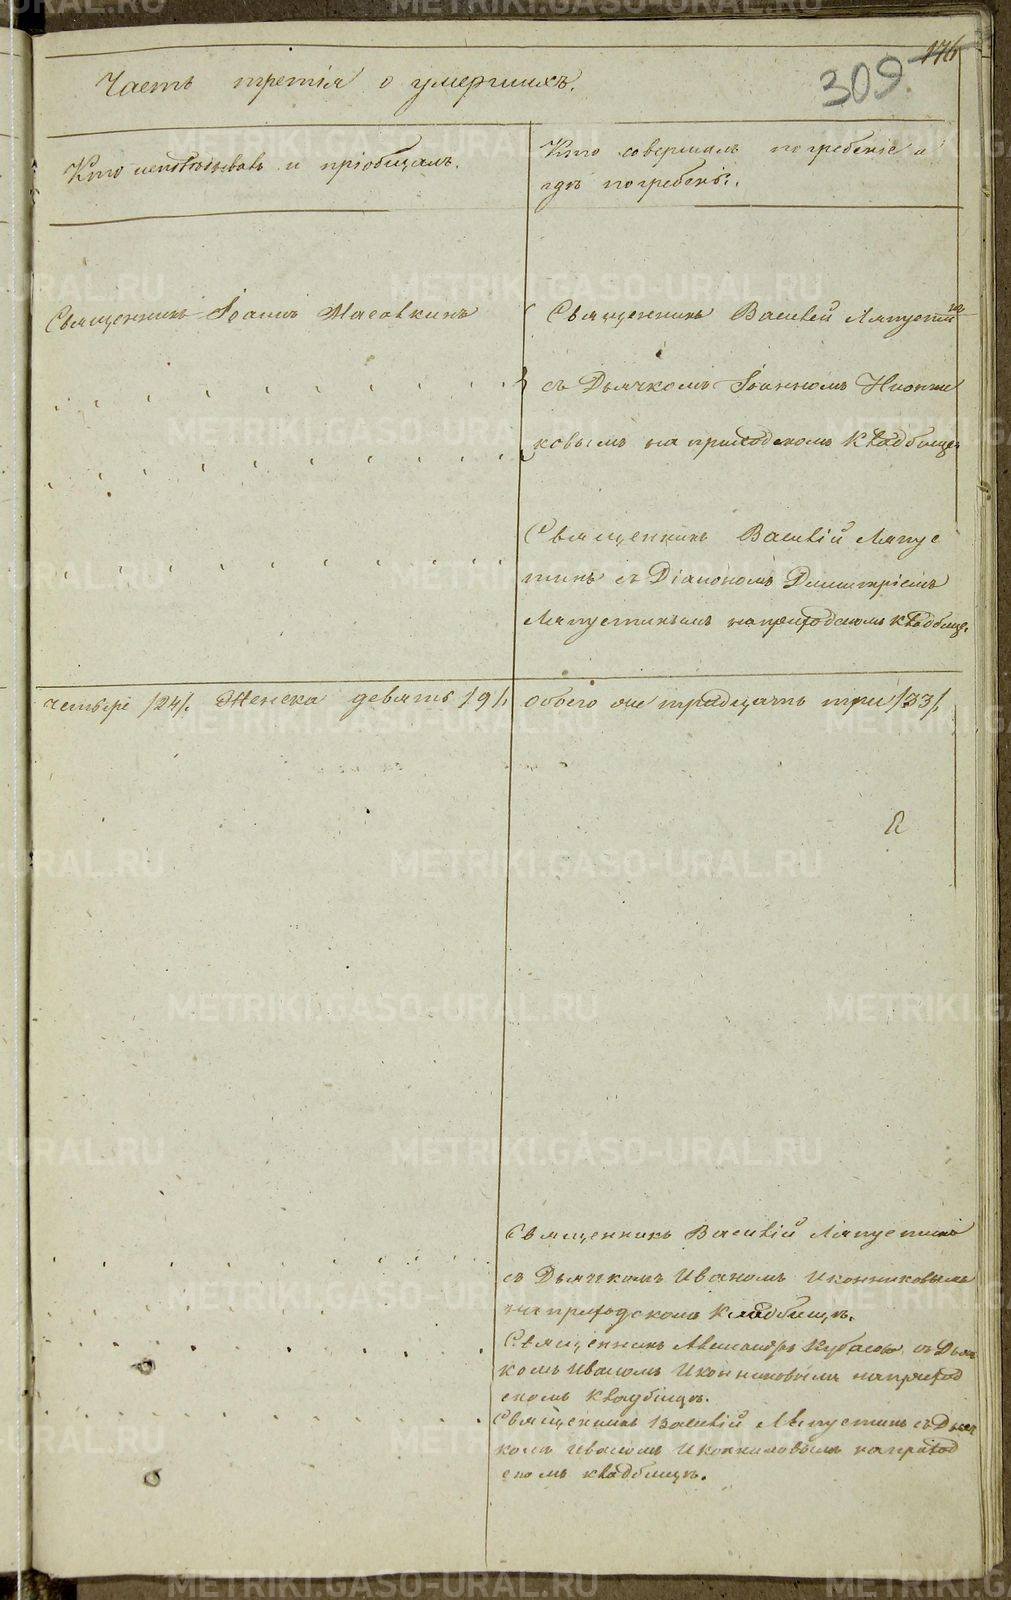 176
309.
Часть третія о умершихъ.
Кто исповѣдывалъ и пріобщалъ.
Кто совершалъ погребеніе и
гдѣ погребены.
Священникъ Іоаннъ Масовкинъ
Священникъ Василій Ляпустинъ
съ Дьячкомъ Іоанномъ Иконни
ковымъ на приходскомъ кладбище
Священникъ Василій Ляпус
тинъ съ Діакономъ Димитріемъ
Ляпустинымъ на приходскомъ кладбище.
четыре /24/. Женска девять /9/.
Обоего же тридцать три /33/.
Священникъ Василій Ляпустинъ
съ Дьячкомъ Иваномъ Иконниковымъ
на приходскомъ кладбищѣ.
Священникъ Александръ Кубасовъ съ Дьяч
комъ Иваномъ Иконниковымъ на приход
скомъ кладбищѣ.
Священникъ Василій Ляпустинъ съ Дьяч
комъ Иваномъ Иконниковымъ на приход
скомъ кладбищѣ.
METRIKI.GASO-URAL.RU